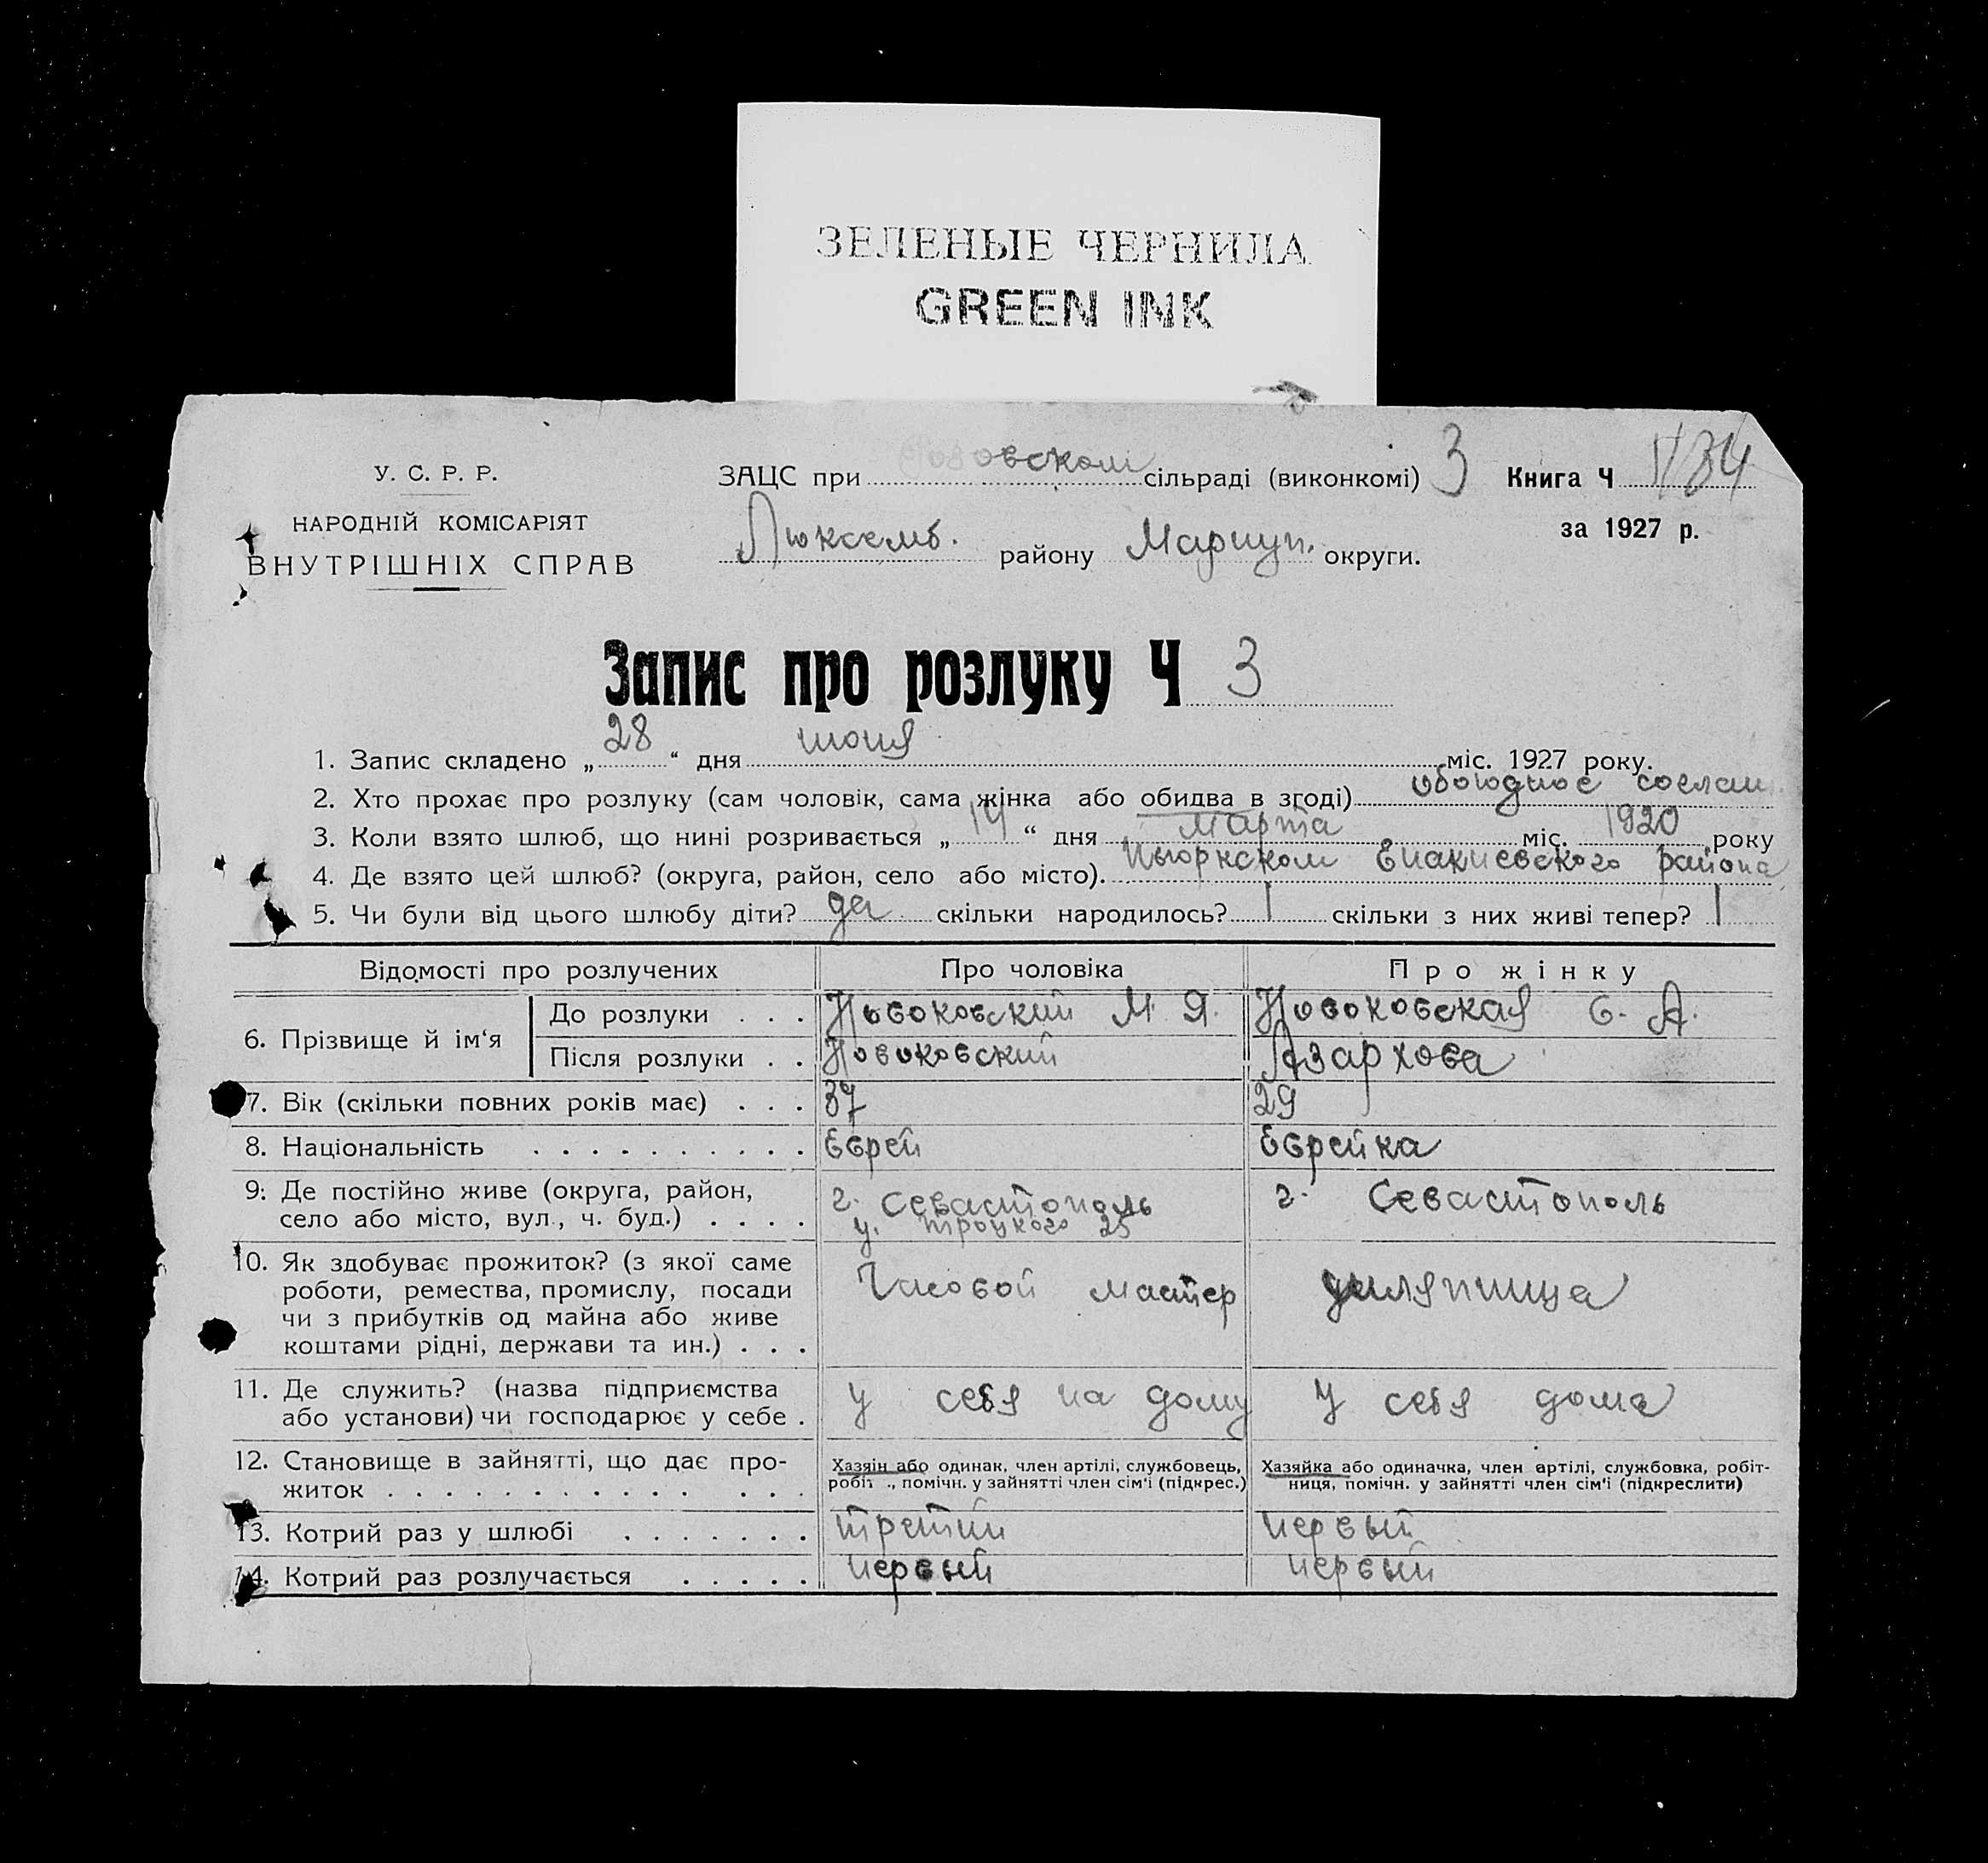 ЗЕЛЕНЫЕ ЧЕРНИЛА
GREEN INK
У. С. Р. Р.
НАРОДНІЙ КОМІСАРІЯТ
ВНУТРІШНІХ СПРАВ
ЗАЦС при сільраді (виконкомі) 3
Люксемб. району Мариуп. округи.
Книга Ч
за 1927 р.
Запис про розлуку Ч 3
1. Запис складено „28“ дня июня міс. 1927 року.
2. Хто прохає про розлуку (сам чоловік, сама жінка або обидва в згоді) обоюдное
3. Коли взято шлюб, що нині розривається „14“ дня Марта міс. 1920 року
4. Де взято цей шлюб? (округа, район, село або місто). Енакиевского района
5. Чи були від цього шлюбу діти? да скільки народилось? 1 скільки з них живі тепер? 1
Відомості про розлучених Про чоловіка Про жінку
6. Прізвище й ім'я До розлуки . . . Новоковский М Я. Новоковская Є. А.
Після розлуки . . Новоковский Азархова
7. Вік (скільки повних років має) . . . 37 29
8. Національність . . . . . . . . . . Еврей Еврейка
9. Де постійно живе (округа, район, г. Севастополь г. Севастополь
село або місто, вул., ч. буд.) . . . . у. Троцкого 25
10. Як здобуває прожиток? (з якої саме
роботи, ремества, промислу, посади Часовой мастер
чи з прибутків од майна або живе
коштами рідні, держави та ин.) . . .
11. Де служить? (назва підприємства у себя на дому у себя дома
або установи) чи господарює у себе .
12. Становище в зайнятті, що дає про- Хазяїн або одинак, член артілі, службовець, Хазяйка або одиначка, член артілі, службовка, робіт-
житок . . . . . . . . . . . . . . робіт ., помічн. у зайнятті член сім'ї (підкрес.) ниця, помічн. у зайнятті член сім'ї (підкреслити)
13. Котрий раз у шлюбі . . . . . . . третий первый
14. Котрий раз розлучається . . . . . первый первый